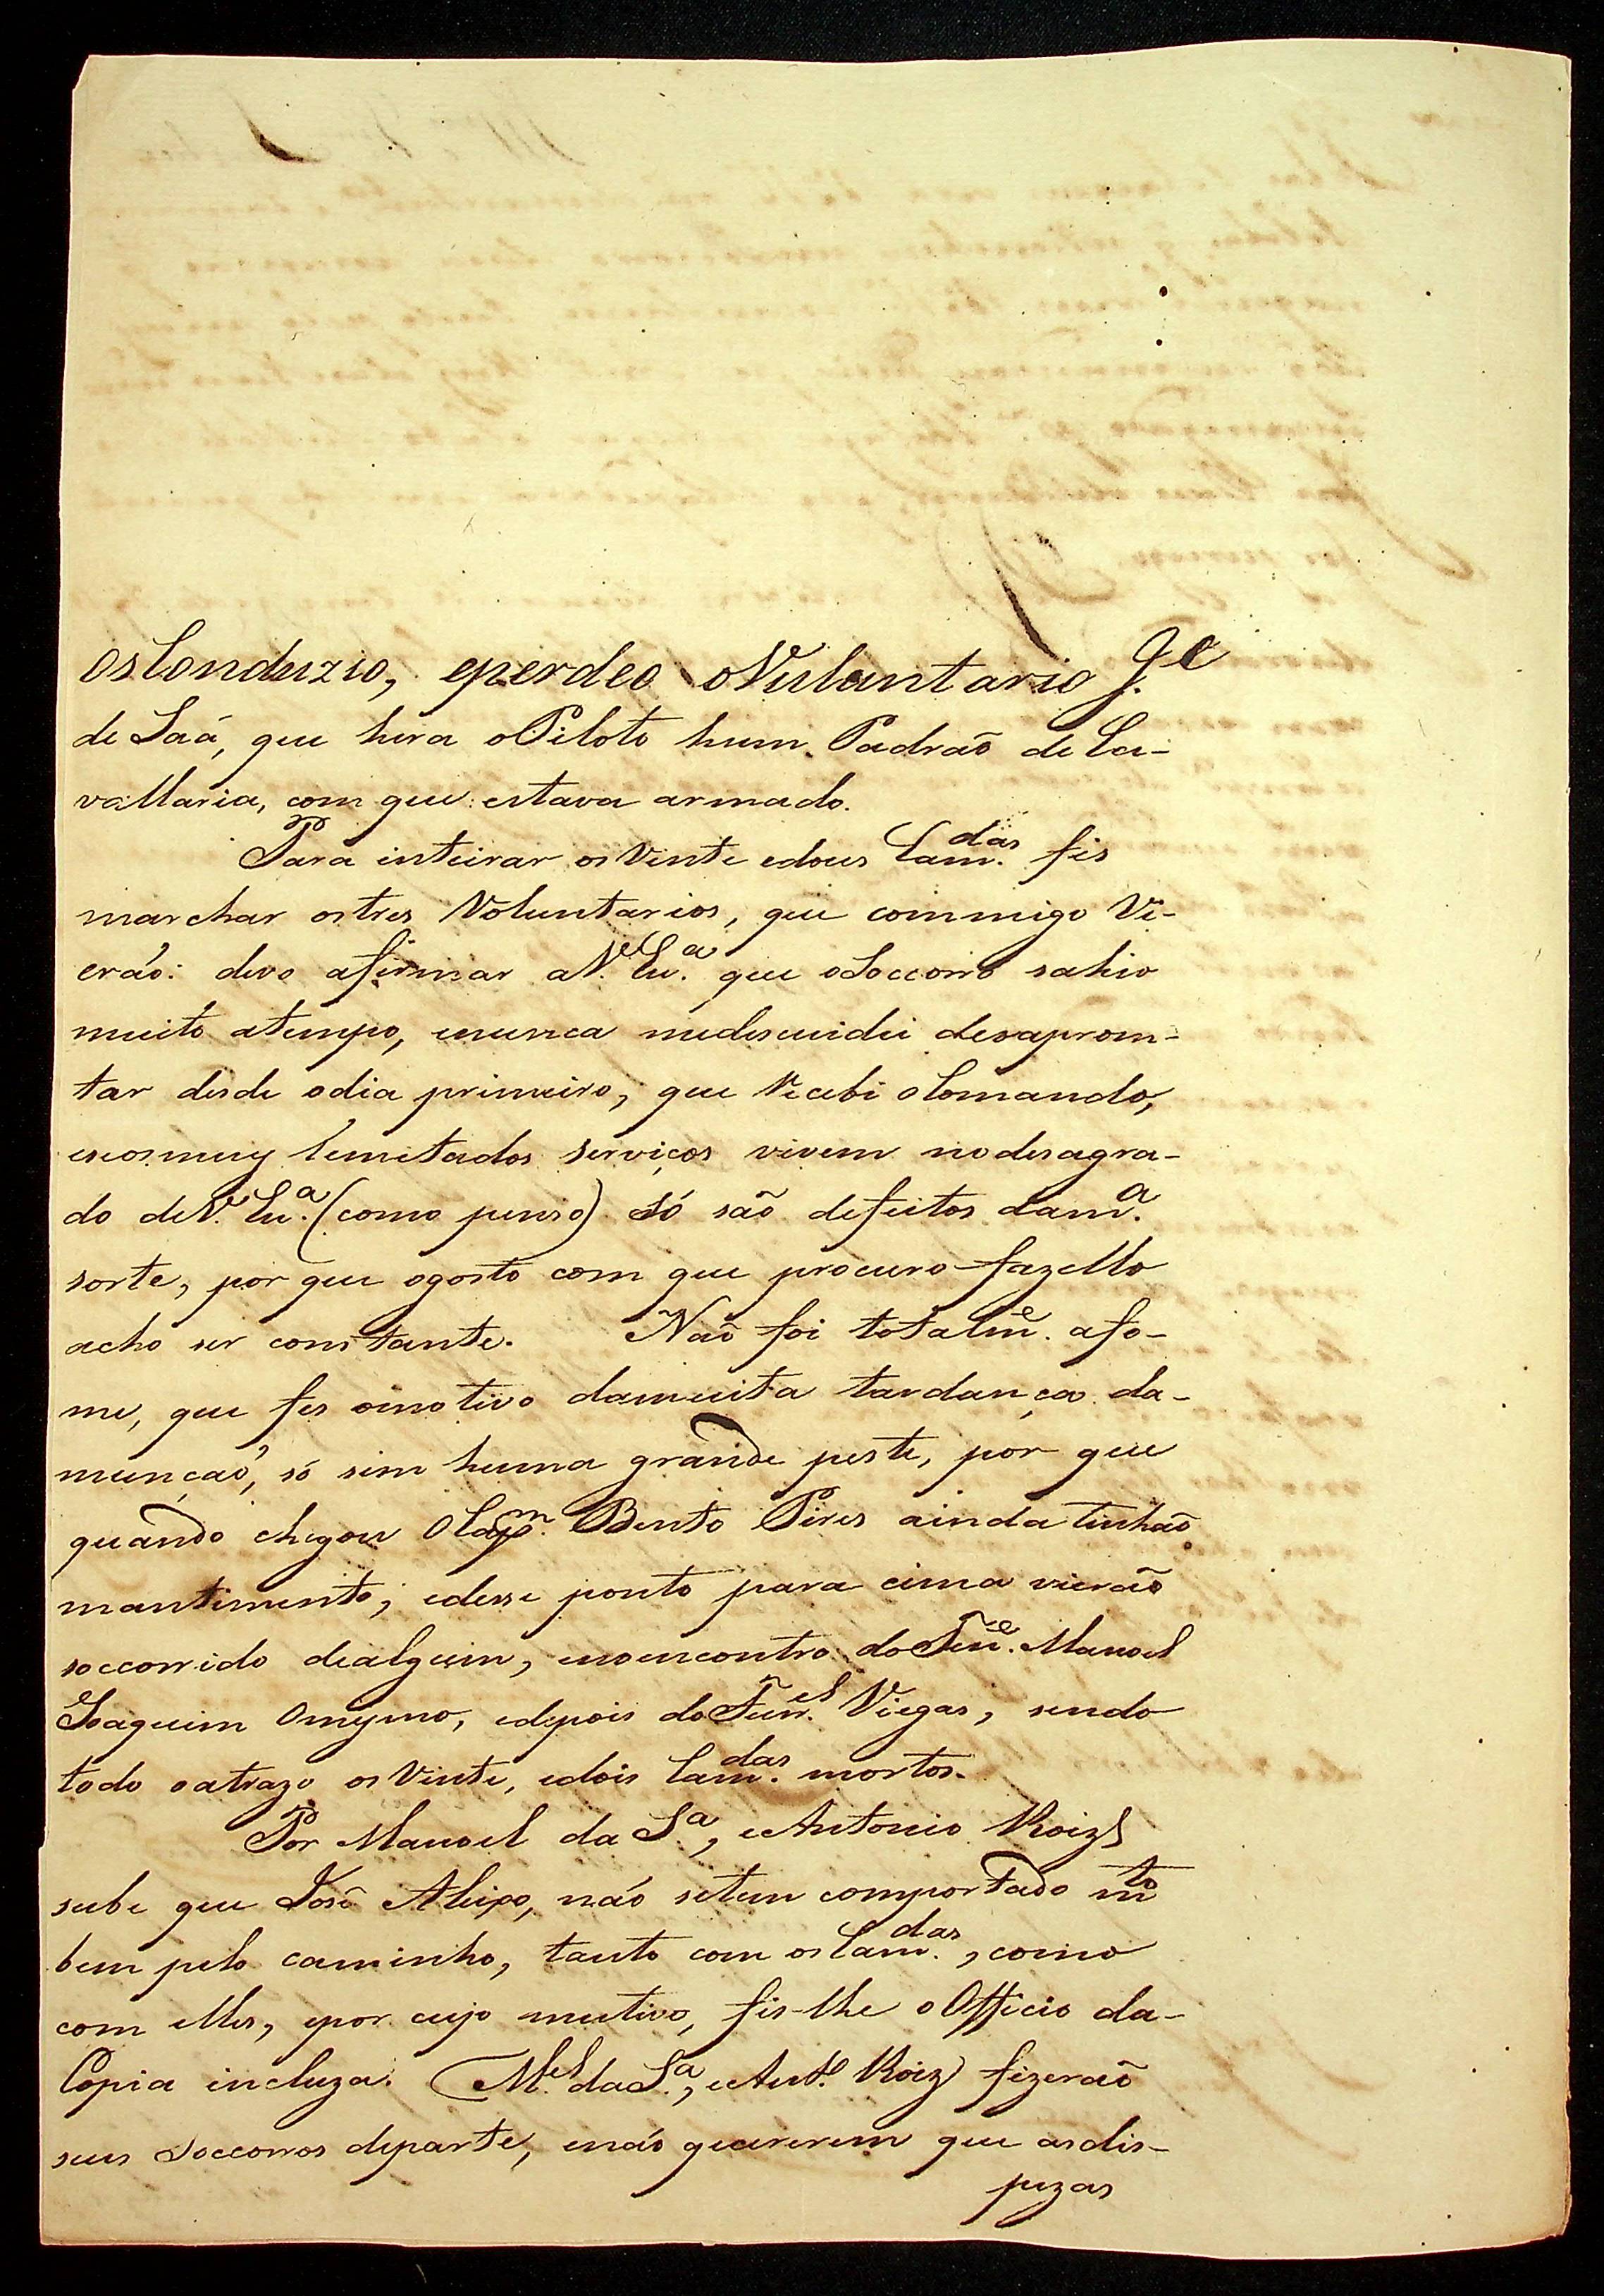 osConduzio, eperdeo oVuluntario J.e
de Saá, que hera oPiloto hum Padraõ de Ca-
vallaria, com que estava armado.
Para inteirar os Vinte edous Cam.das fis
marchar ostres Voluntarios, que commigo Vi-
eraó: devo afirmar aV. Eu.a que oSoccorro sahio
muito atempo, enunca medescuidei desaprom-
tar desde odia primeiro, que Recebi oComando,
eseosmeus lemitados serviços vivem nodesagra-
do deV. Eu.a (como penso) Só saõ defeitos dam.a
sorte, por que ogosto com que procuro fazello
acho ser constante. Naõ foi totalm̃e. afo-
me, que fes omotivo damuita tardança da-
munçaó, só sim huma grande peste, por que
quando chegou oCap.m Bento Pires ainda tinhaõ
mantimento; edesse ponto para cima vieraõ
soccorrido dealguem, enoencontro doTen̄e. Manoel
Joaquim Omesmo, edepois doTen.el Viegas, sendo
todo oatrazo os Vinte, edois Cam.das mortos.
Por Manoel da S.a, eAntonio Roiz
sube que José Aleixo, naó setem comportado m.to
bem pelo caminho, tanto com osCam.das, como
com elles, epor cujo mutivo, fis-lhe oOfficio da-
Copia incluza. M.el daS.a, eAnt.o Roiz fizeraõ
seus Soccorros departe, enaó quererem que asdis-
pezas